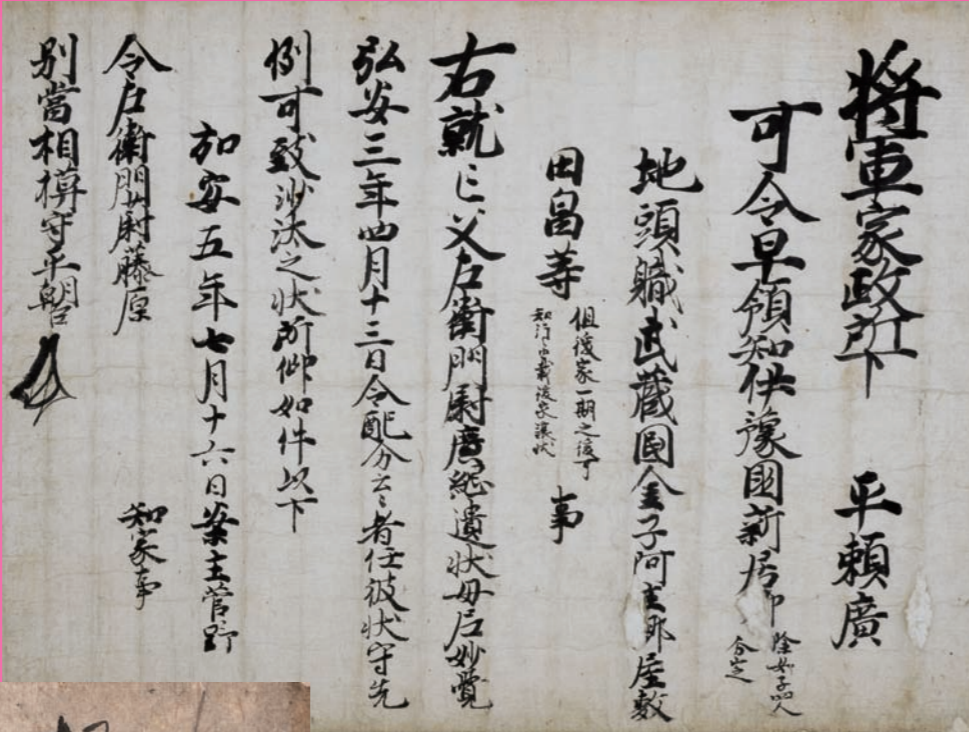 将軍家政所下　平頼廣
可令早領知伊豫國新居郷 除女子四人
分定
地頭職武蔵国金子阿主郎屋敷
田畠等 但後家一期之後可
知行由載後家譲状 事
右就亡父左衛門尉廣綱遺状母尼妙覺
弘安三年四月十三日令配分云々者任彼状守先
例可致沙汰之状所仰如件以下
弘安五年七月十六日案主菅野
知家事
令左衛門尉藤原
別當相模守平朝臣